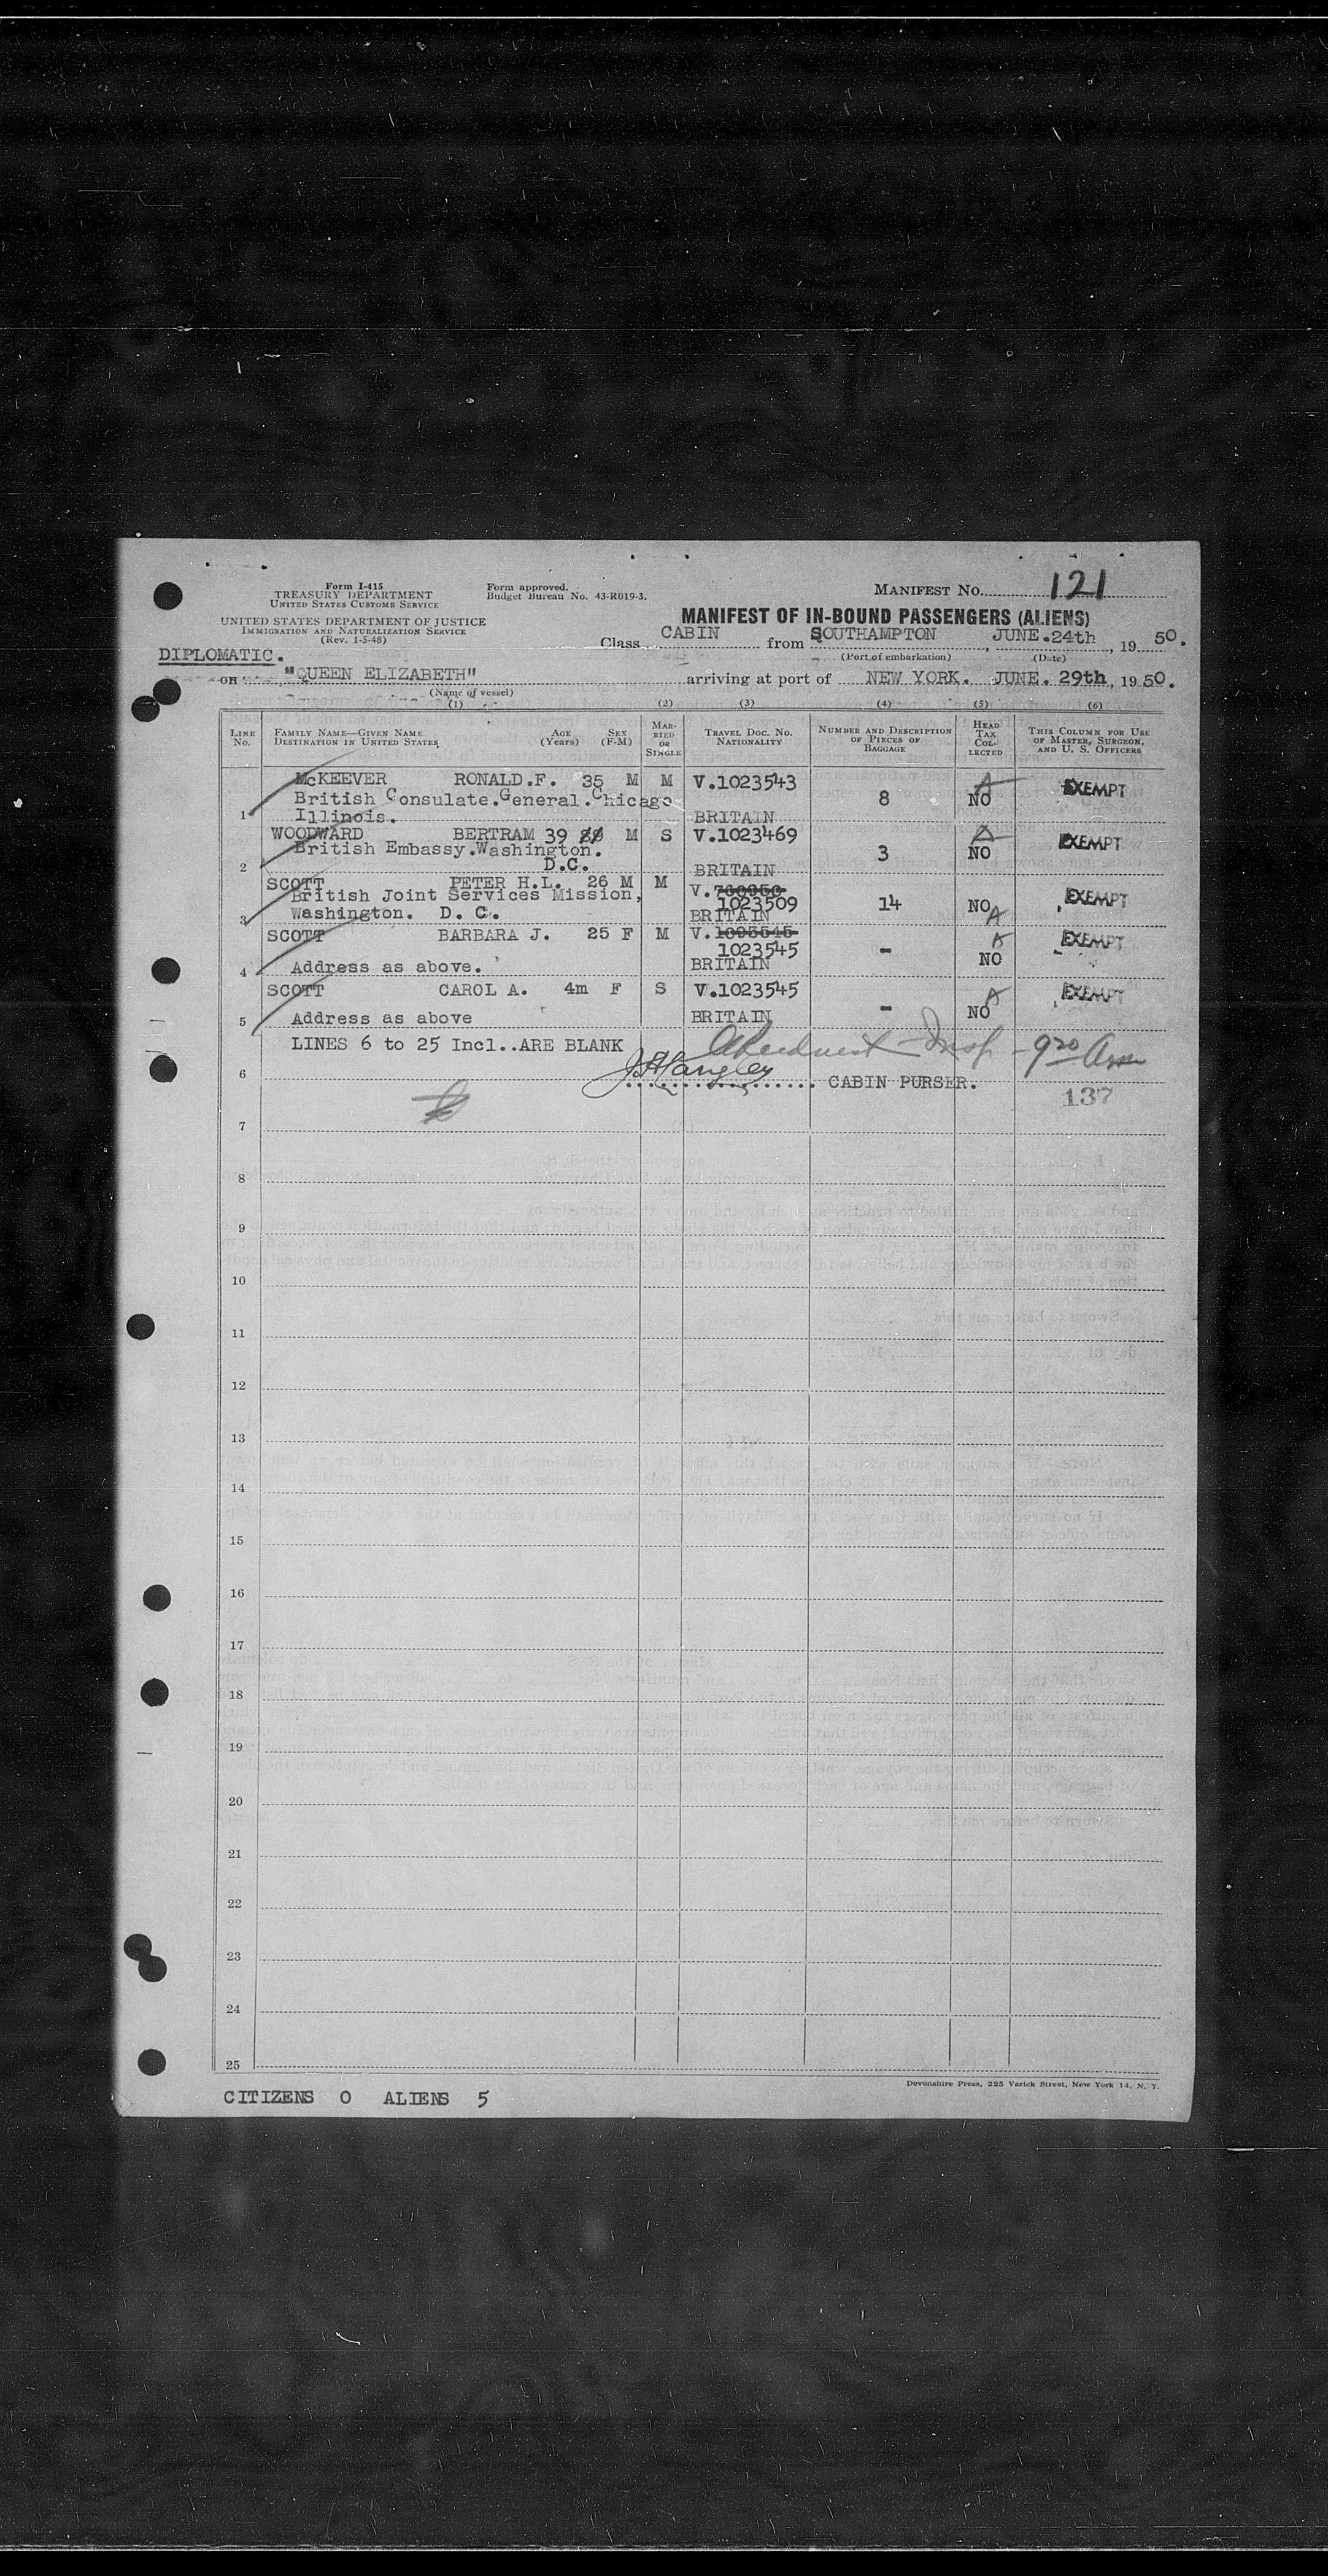 Form I-415
TREASURY DEPARTMENT
UNITED STATES CUSTOMS SERVICE
UNITED STATES DEPARTMENT OF JUSTICE
IMMIGRATION AND NATURALIZATION SERVICE
(Rev. 1-5-48)
Form approved.
Budget Bureau No. 43-R019-3.
MANIFEST No. 121
MANIFEST OF IN-BOUND PASSENGERS (ALIENS)
Class CABIN from SOUTHAMPTON, JUNE.24th, 19 50.
(Port of embarkation) (Date)
DIPLOMATIC.
on "QUEEN ELIZABETH" arriving at port of NEW YORK. JUNE. 29th, 19 50.
(Name of vessel)
(1) (2) (3) (4) (5) (6)
LINE No. FAMILY NAME—GIVEN NAME DESTINATION IN UNITED STATES AGE (Years) SEX (F-M) MARRIED OR SINGLE TRAVEL DOC. NO. NATIONALITY NUMBER AND DESCRIPTION OF PIECES OF BAGGAGE HEAD TAX COLLECTED THIS COLUMN FOR USE OF MASTER, SURGEON, AND U. S. OFFICERS
McKEEVER RONALD.F. 35 M M V.1023543 A EXEMPT
British Consulate.General.Chicago 8 NO
1 Illinois. BRITAIN
WOODWARD BERTRAM 39 M S V.1023469 A EXEMPT
British Embassy.Washington. 3 NO
2 D.C. BRITAIN
SCOTT PETER H.L. 26 M M V. 760950
British Joint Services Mission, 1023509 14 NO EXEMPT
3 Washington. D. C. BRITAIN A
SCOTT BARBARA J. 25 F M V. 1093545 A EXEMPT
1023545 - NO
4 Address as above. BRITAIN
SCOTT CAROL A. 4m F S V.1023545 A EXEMPT
5 Address as above BRITAIN - NO
LINES 6 to 25 Incl..ARE BLANK Insp - 9 20 Am
6 J.H.Langley CABIN PURSER.
137
7
8
9
10
11
12
13
14
15
16
17
18
19
20
21
22
23
24
25
Devonshire Press, 225 Varick Street, New York 14, N. Y.
CITIZENS 0 ALIENS 5